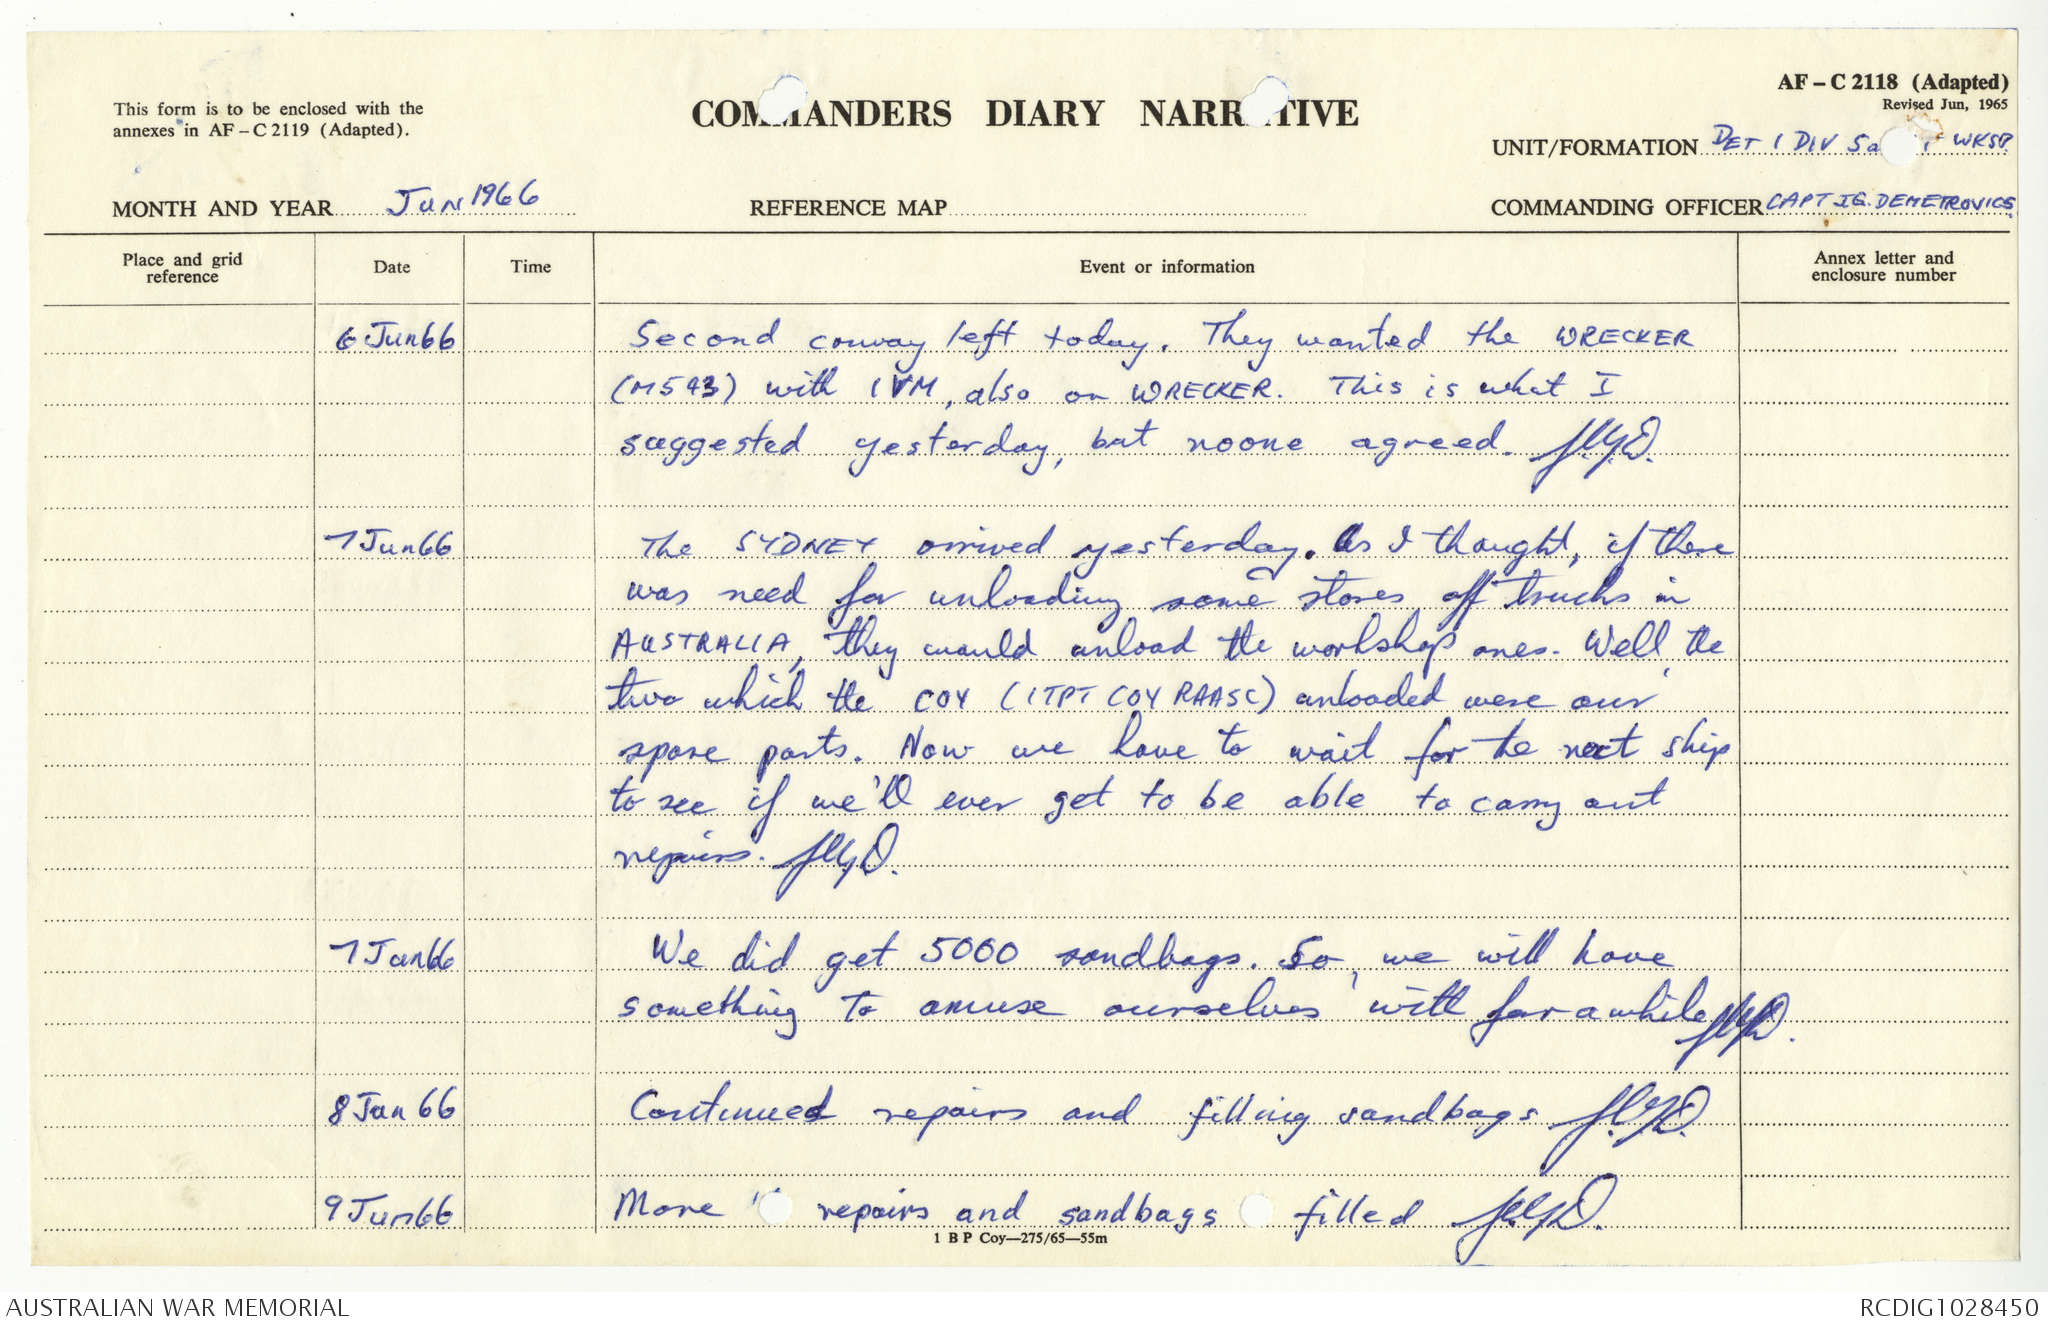 This form is to be enclosed with the
annexes in AF – C 2119 (Adapted).
COMMANDERS DIARY NARRATIVE
AF – C 2118 (Adapted)
Revised Jun, 1965
UNIT/FORMATION DET 1 DIV WKSP
MONTH AND YEAR Jun 1966
REFERENCE MAP
COMMANDING OFFICER CAPT I.G. DEMETROVICS
Place and grid reference
Date
Time
Event or information
Annex letter and enclosure number
6 Jun 66 Second convoy left today. They wanted the WRECKER
(M543) with 1 VM, also on WRECKER. This is what I
suggested yesterday, but noone agreed.
7 Jun 66 The SYDNEY arrived yesterday. As I thought, if there
was need for unloading some stores off trucks in
AUSTRALIA, they would unload the workshop ones. Well, the
two which the COY (1 TPT COY RAASC) unloaded were our
spare parts. Now we have to wait for the next ship
to see if we'll ever get to be able to carry out
repairs.
7 Jun 66 We did get 5000 sandbags. So, we will have
something to amuse ourselves with for a while
8 Jun 66 Continued repairs and filling sandbags
9 Jun 66 More repairs and sandbags filled
1 B P Coy—275/65—55m
AUSTRALIAN WAR MEMORIAL
RCDIG1028450